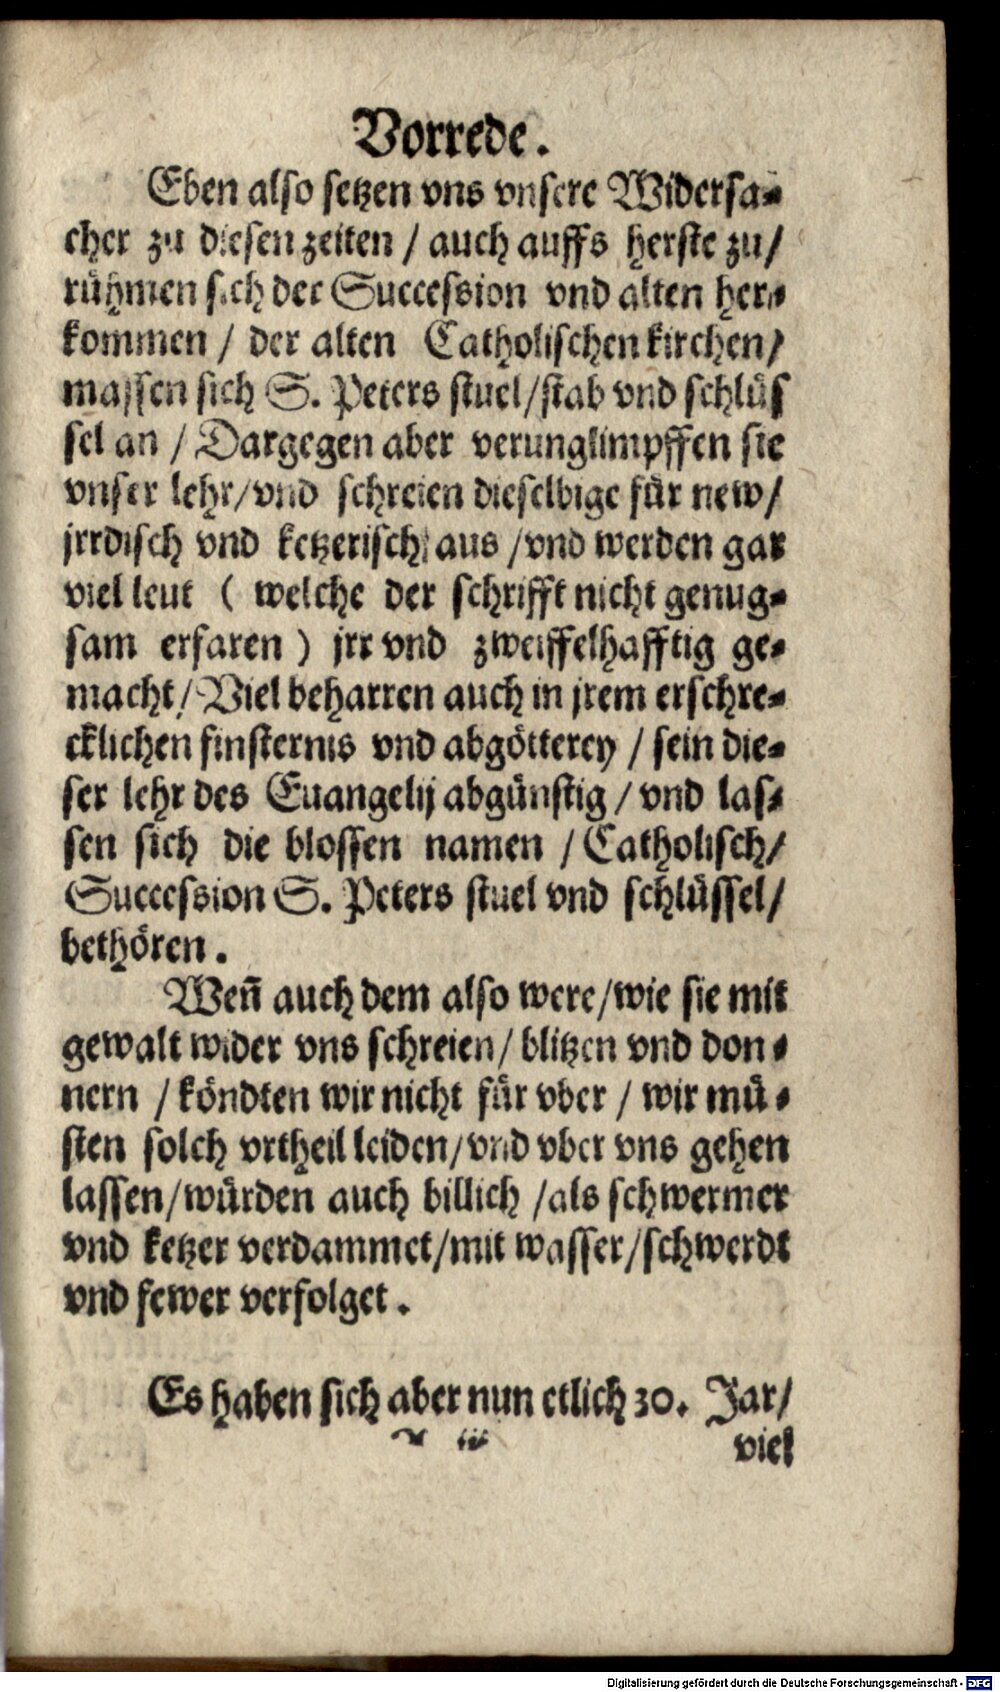 Vorrede.
Eben also setzen vns vnsere Widersa-
cher zu diesen zeiten / auch auffs herste zu/
rühmen sich der Succession vnd alten her-
kommen / der alten Catholischen kirchen/
massen sich S. Peters stuel/stab vnd schlüs
sel an / Dargegen aber verunglimpffen sie
vnser lehr/vnd schreien dieselbige für new/
jrrdisch vnd ketzerisch aus /vnd werden gar
viel leut ( welche der schrifft nicht genug-
sam erfaren ) jrr vnd zweiffelhafftig ge-
macht/ Viel beharren auch in jrem erschre-
cklichen finsternis vnd abgötterey / sein die-
ser lehr des Euangelij abgünstig / vnd las-
sen sich die blossen namen / Catholisch/
Succession S. Peters stuel vnd schlüssel/
bethören.
Weñ auch dem also were/wie sie mit
gewalt wider vns schreien/ blitzen vnd don-
nern / köndten wir nicht für vber / wir mü-
sten solch vrtheil leiden/vnd vber vns gehen
lassen/würden auch billich /als schwermer
vnd ketzer verdammet/mit wasser/schwerdt
vnd fewer verfolget.
Es haben sich aber nun etlich 30. Jar/
iij
viel
Digitalisierung gefördert durch die Deutsche Forschungsgemeinschaft - DFG